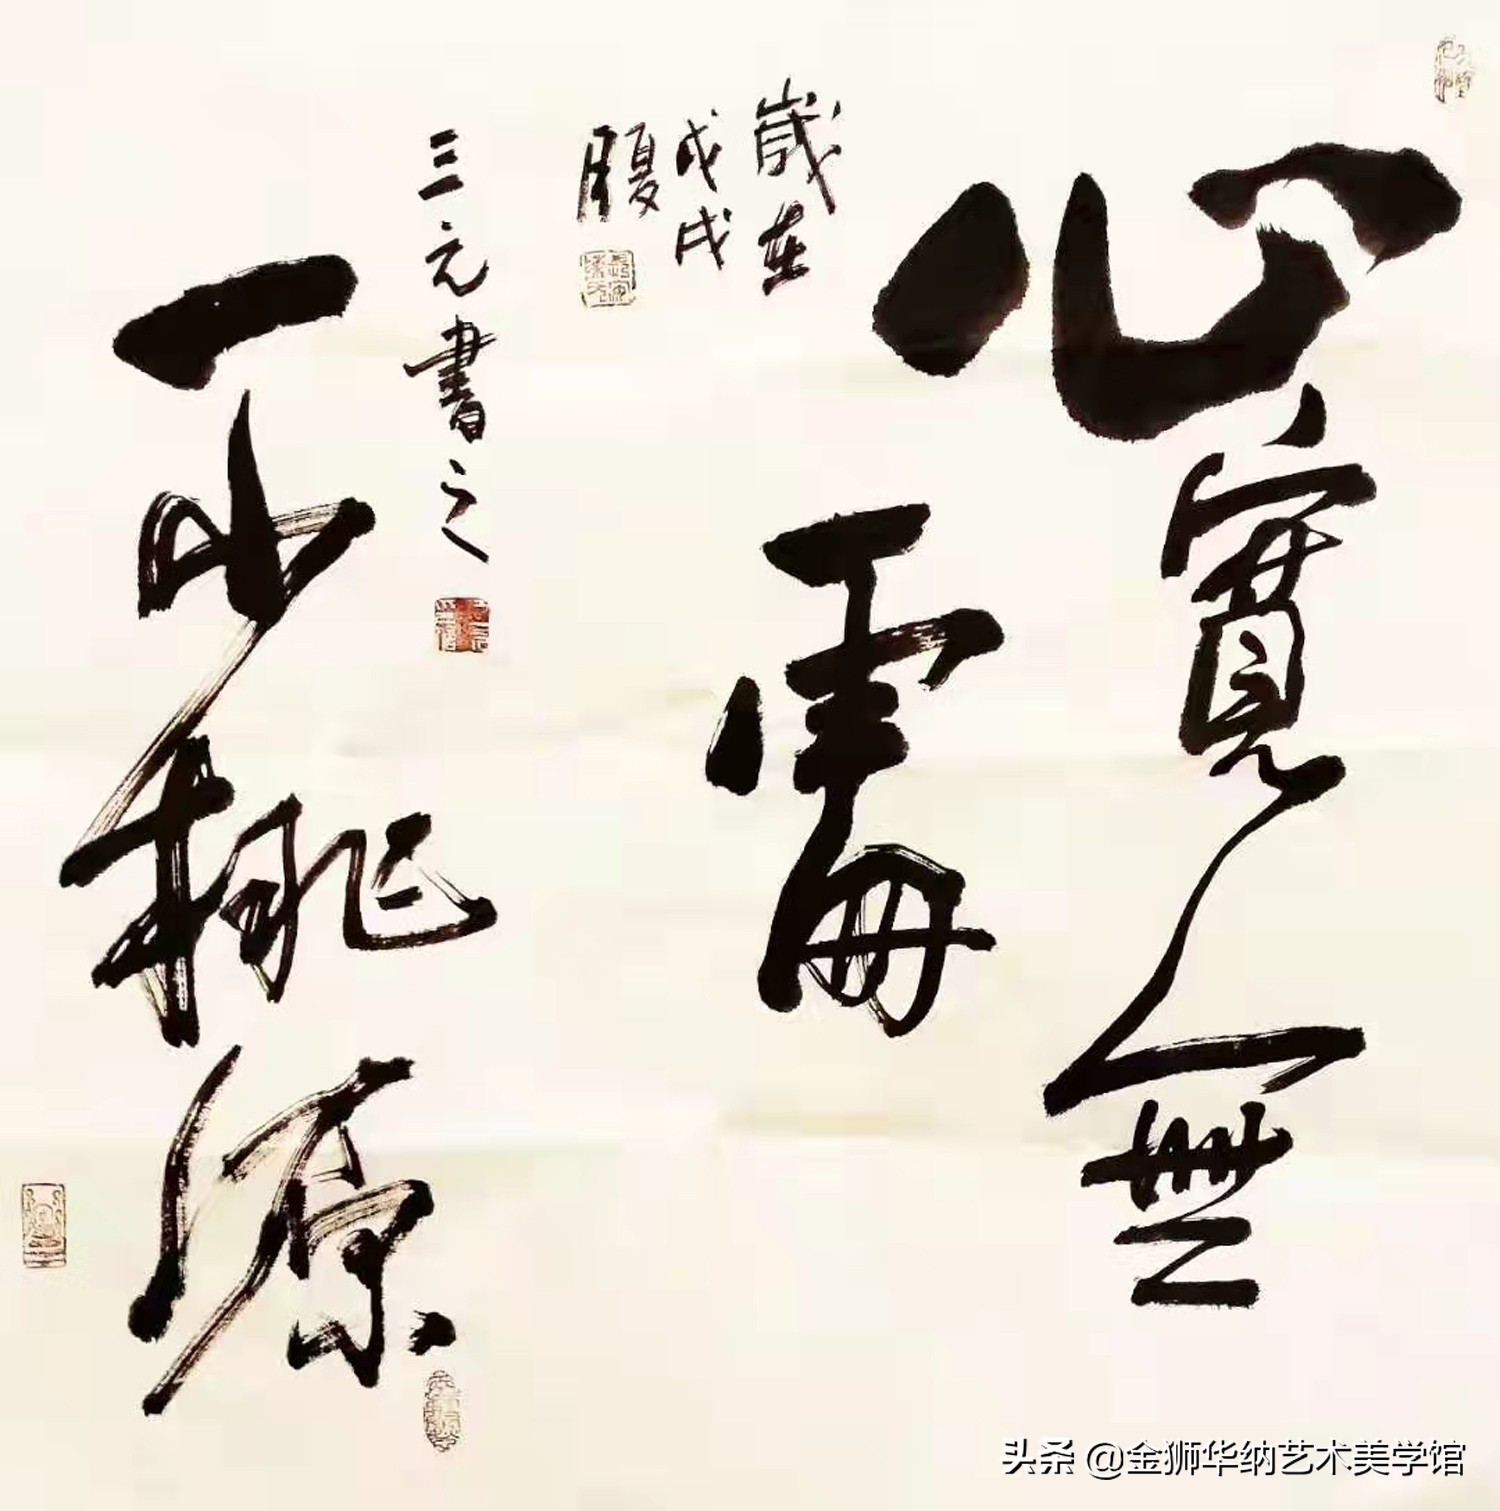 心寬無
處
歲在
戊戌
夏月
三元書之
不桃源
头条 @金狮华纳艺术美学馆